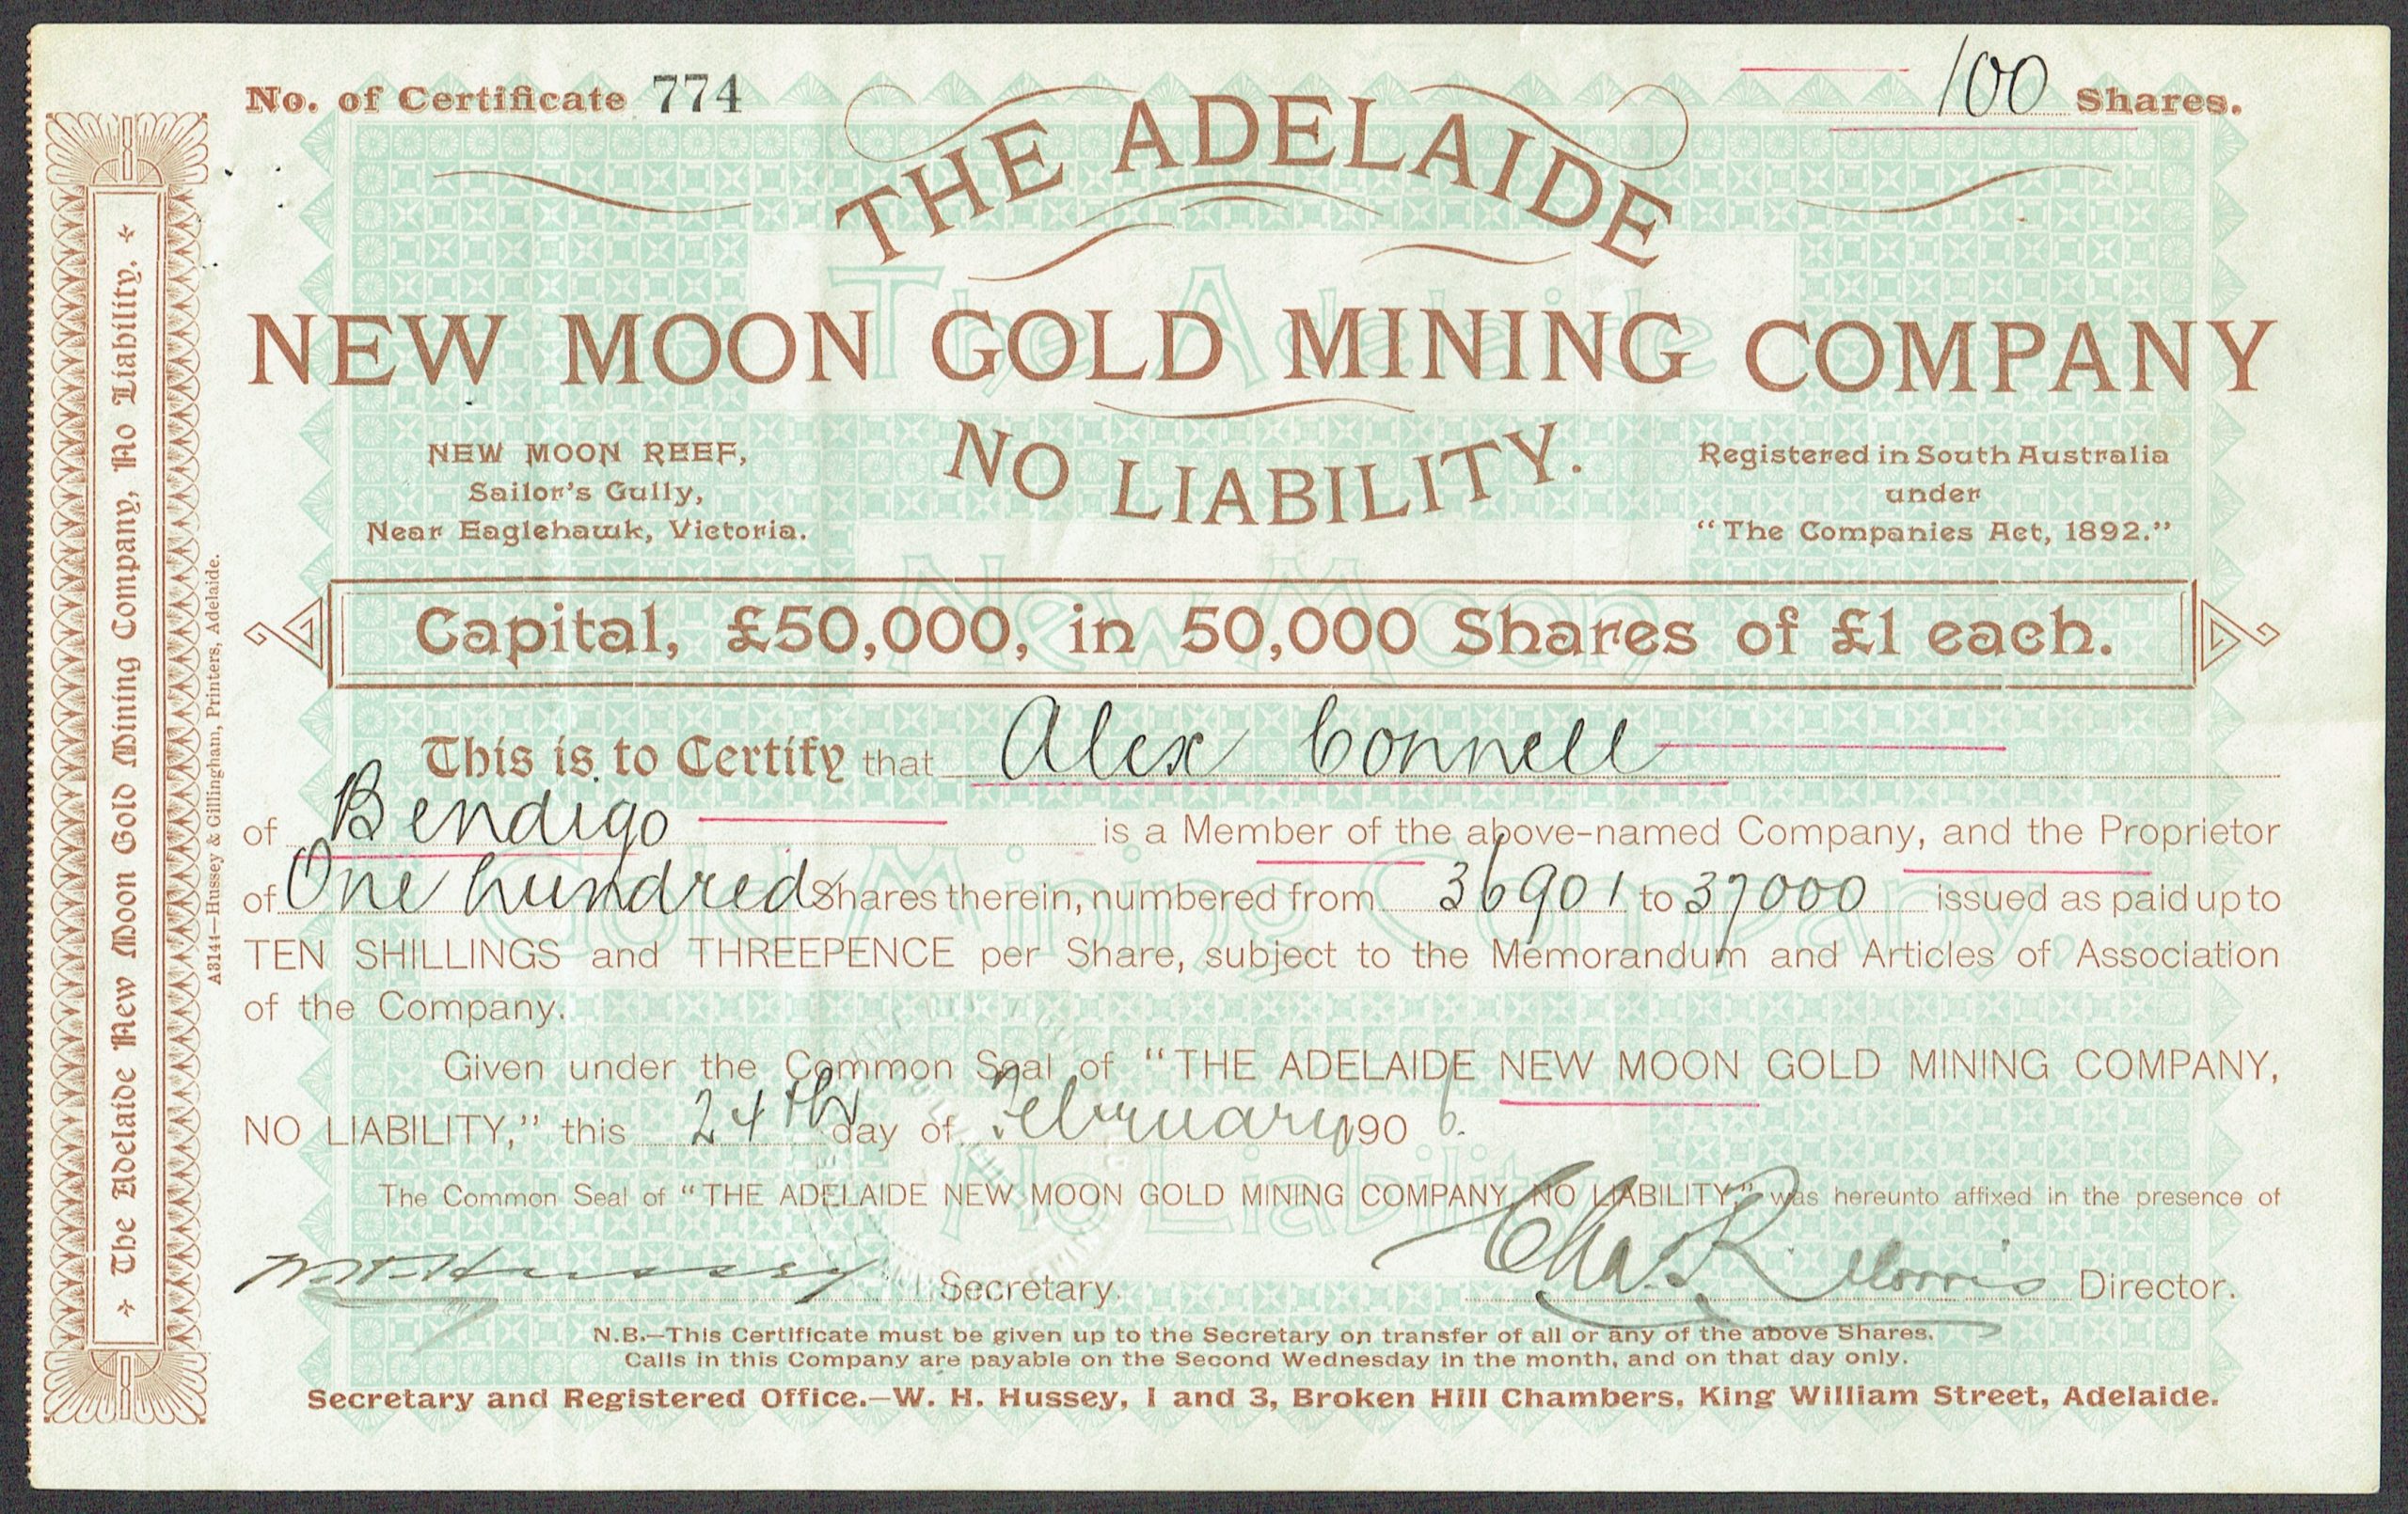 No. of Certificate 774
100 Shares.
THE ADELAIDE
NEW MOON GOLD MINING COMPANY
NO LIABILITY.
NEW MOON REEF,
Sailor's Gully,
Near Eaglehawk, Victoria.
Registered in South Australia
under
“The Companies Act, 1892.”
Capital, £50,000, in 50,000 Shares of £1 each.
This is to Certify that Alex Connell
of Bendigo is a Member of the above-named Company, and the Proprietor
of One hundred Shares therein, numbered from 36901 to 37000 issued as paid up to
TEN SHILLINGS and THREEPENCE per Share, subject to the Memorandum and Articles of Association
of the Company.
Given under the Common Seal of “THE ADELAIDE NEW MOON GOLD MINING COMPANY,
NO LIABILITY,” this 24th day of February 1906.
The Common Seal of “THE ADELAIDE NEW MOON GOLD MINING COMPANY, NO LIABILITY,” was hereunto affixed in the presence of
W. H. Hussey Secretary.
Chas. R. Morris Director.
N.B.—This Certificate must be given up to the Secretary on transfer of all or any of the above Shares.
Calls in this Company are payable on the Second Wednesday in the month, and on that day only.
Secretary and Registered Office.—W. H. Hussey, 1 and 3, Broken Hill Chambers, King William Street, Adelaide.
The Adelaide New Moon Gold Mining Company, No Liability.
A3144—Hussey & Gillingham, Printers, Adelaide.
The Adelaide
New Moon
Gold Mining Company,
No Liability